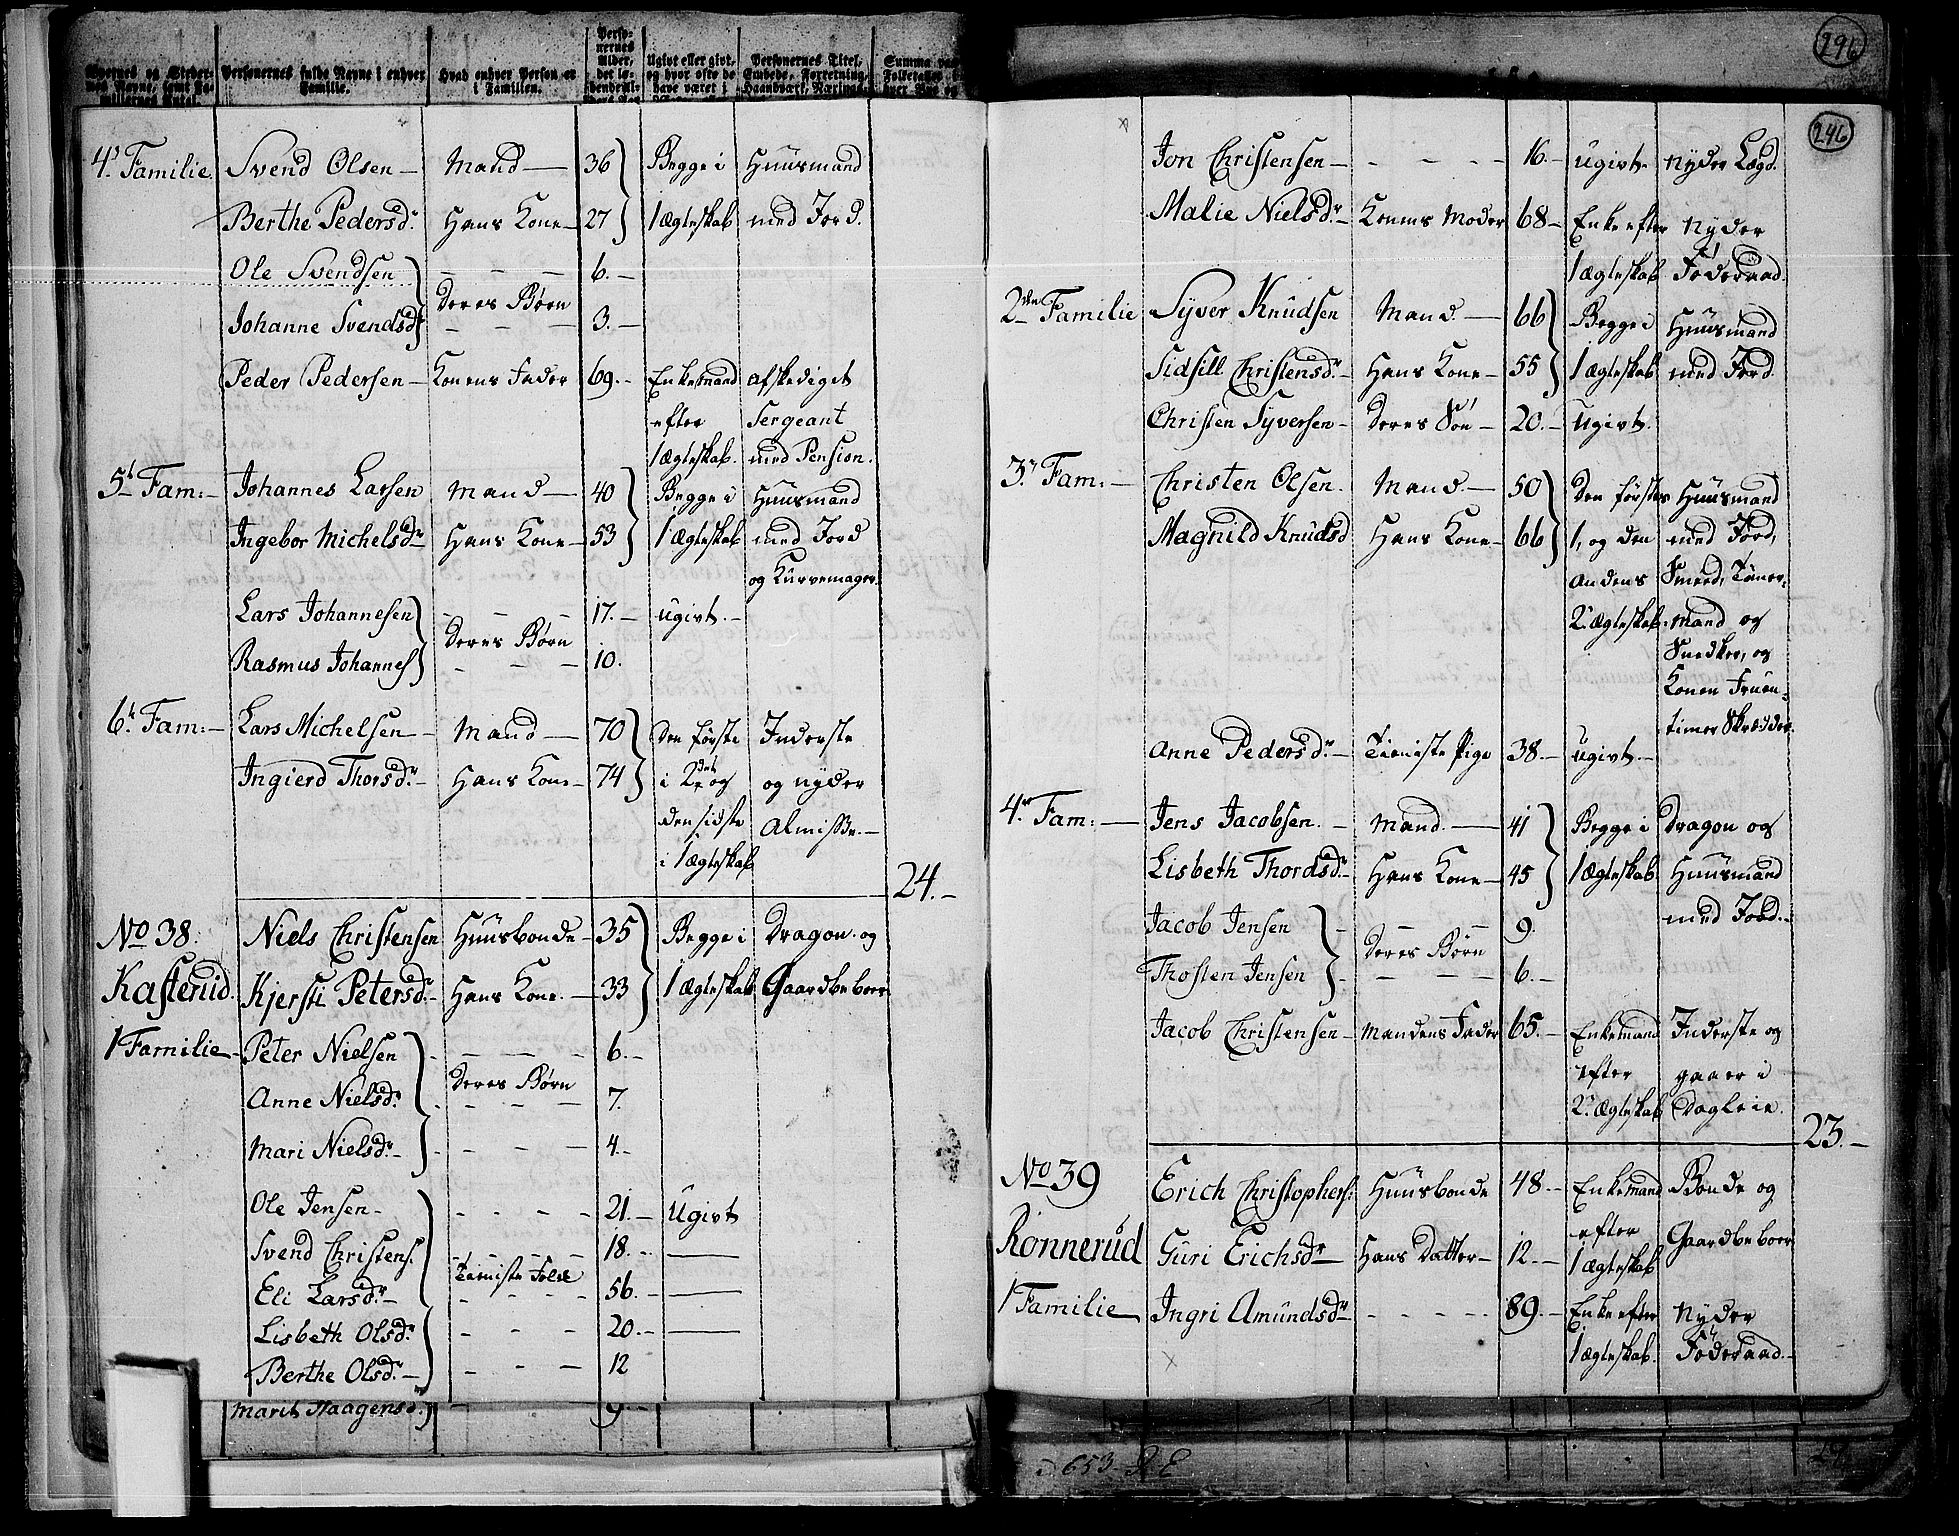 296
Personernes fulde Navne i enhver Familie.
Hvad enhver Person er i Familien.
Personernes Alder,
Ugivt eller givt, og hvor ofte de have været i
Personernes Titel, Embede, Forretning, Haandværk,
4. Familie. Svend Olsen — Mand — 36 Begge i Huusmand
Berthe Pedersdr. Hans Kone — 27 1 Ægteskab med Jord.
Ole Svendsen — — — 6. —
Deres Børn
Johanne Svendsdr — — — 3. —
Peder Pedersen — Konens Fader 69. — Enkemand afskediget
efter Sergeant
1 Ægteskab. med Pension.
5t Fam: — Johannes Larsen Mand — 40 Begge i Huusmand
Ingebor Michelsdr Hans Kone — 53 1 Ægteskab med Jord
og Kurvemager.
Lars Johannesen — — — 17. — ugivt. —
Deres Børn
Rasmus Johannes — — — 10.
6t Fam: — Lars Michelsen — Mand — 70 Den første Inderste
Ingierd Thorsdr. — Hans Kone — 74 i 2det og og nyder
den sidste Almisse. —
i 1 Ægteskab
24. —
No 38. Niels Christensen Huusbonde — 35 Begge i Dragon og
Kasterud. Kjersti Petersdr. — Hans Kone. — 33 1 Ægteskab Gaardbeboer
1 Familie — Peter Nielsen — — — 6. —
Deres Børn
Anne Nielsdr. — — — 7.
Mari Nielsdr. — — — — 4. —
Ole Jensen — — — — — 21. — Ugivt
Svend Christens. — — — 18. — —
Tieniste Folk
Eli Larsdr. — — — — 56. — —
Lisbeth Olsdr. — — — 20. — —
Berthe Olsdr. — — — — 12
Marit Haagensd. — 9 —
246
Jon Christensen — — — — — 16. — ugivt — nyder Lægd.
Malie Nielsdr. — Konens Moder 68 — Enke efter nyder
1 Ægteskab Føderaad.
2den Familie Syver Knudsen Mand. — 66 Begge i Huusmand
Sidsill Christensdr. — Hans Kone — 55 1 Ægteskab med Jord.
Christen Syversen — Deres Søn — 20. — ugivt.
3. Fam: — Christen Olsen. Mand. — 50 Den førstes Huusmand
Magnild Knudsd Hans Kone — 66 1, og den med Jord,
andens Smeed, Tømer-
2. Ægteskab. mand og
Snedker, og
Konen Fruen-
timer Skrædder.
Anne Pedersdr. — Tieniste Pige 38. — ugivt. —
4. Fam: — Jens Jacobsen. — Mand. — 41 Begge i Dragon og
Lisbeth Thordsdr. — Hans Kone — 45 1 Ægteskab Huusmand
med Jord. —
Jacob Jensen — — — 9.
Deres Børn
Thosten Jensen — — — 6. —
Jacob Christensen — Mandens Fader 65. — Enkemand Inderste og
efter gaaer i
2. Ægteskab Dagleie.
23. —
No 39 Erich Christophers: Huusbonde 48. — Enkemand Bonde og
efter Gaardbeboer
Rønnerud Guri Erichsdr — Hans Datter — 12. — 1 Ægteskab
1 Familie — Ingri Amundsdr — — — — — 89. — Enke efter nyder
1 Ægteskab. Føderaad. —
653